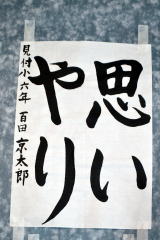 思い
やり
見付小六年 百田京太郎